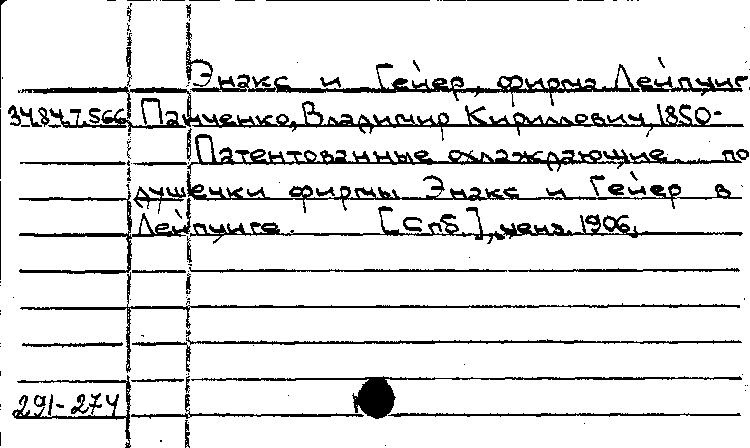 Энакс и Гейер, фирма. Лейпциг.
34.84.7.566 Панченко, Владимир Кириллович, 1850-
Патентованные охлаждающие по
душечки фирмы Энакс и Гейер в
Лейпциге. [Спб], ценз. 1906.
291-274